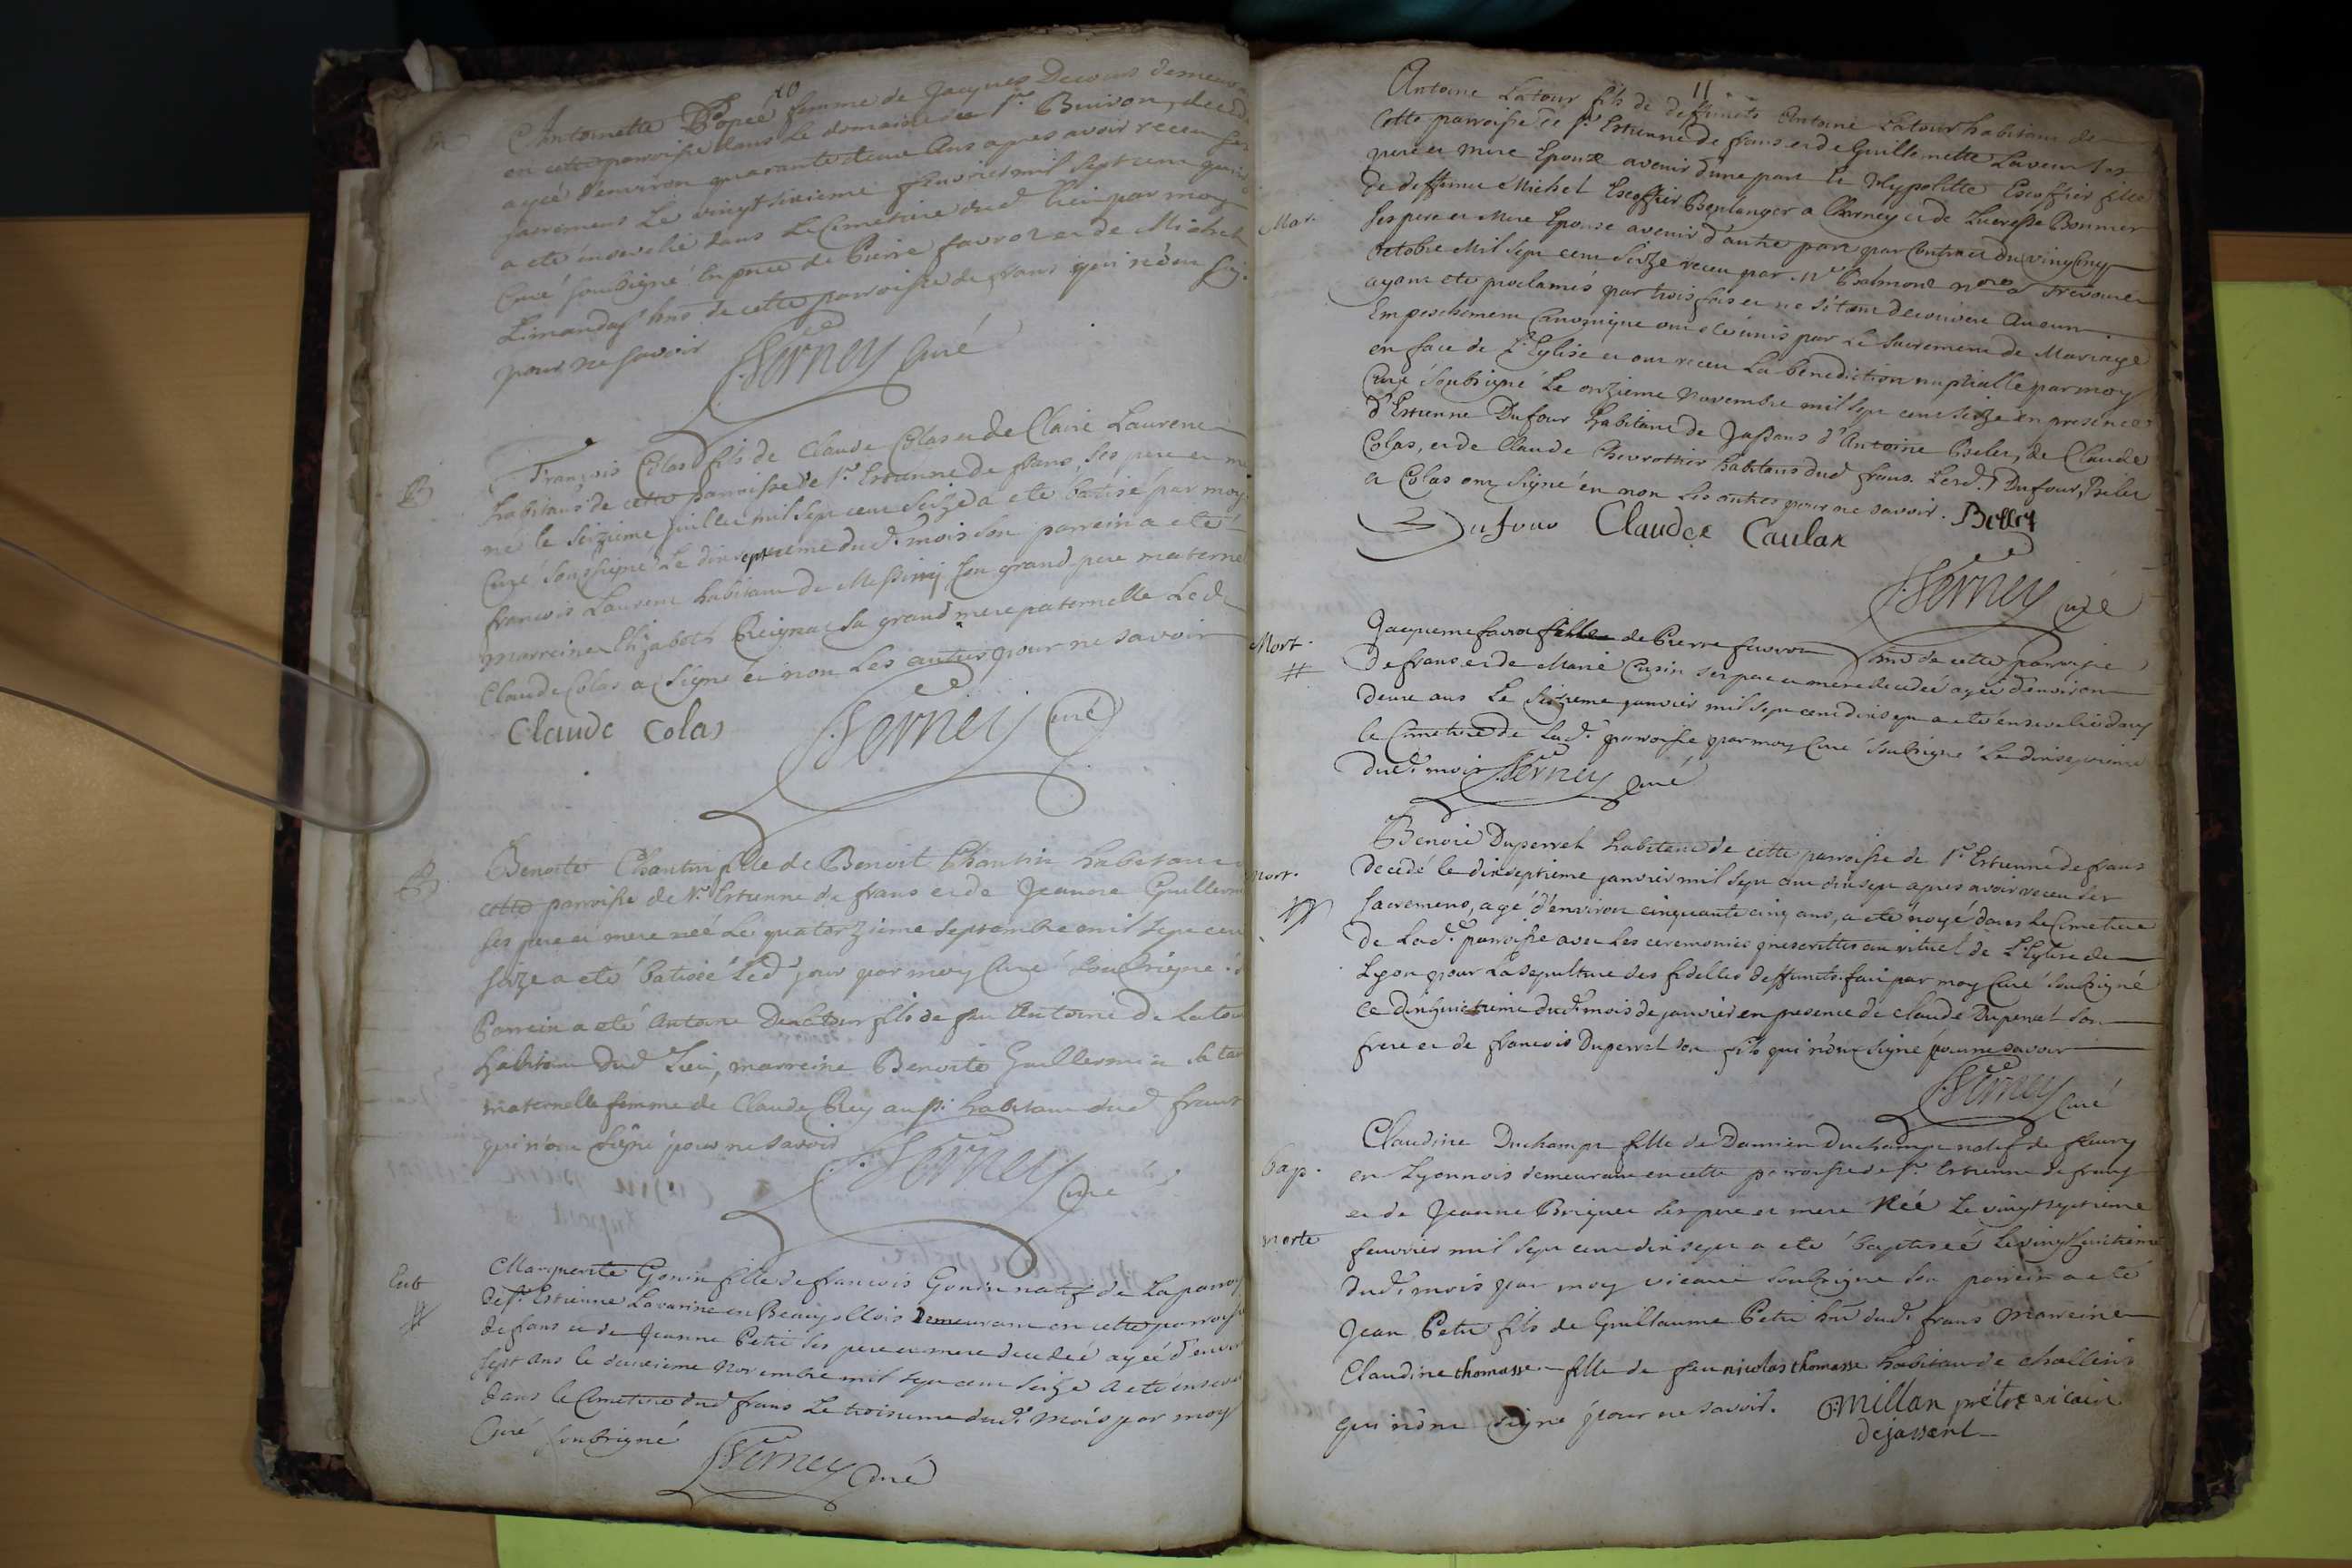 10
Antoinette Popée femme de Jacques Decours demeura
en cette parroisse dans le domaine du Sr. Buiron, decede
agée d'environ quarante deux Ans apres avoir receu ses
sacremens Le vingt sixieme feuvrier mil Sept cent
a eté ensevelie dans Le Cimetiere dud lieu par moy
Curé Soubsigné En pnce de Pierre favroz et de Michel
Limandas hns de cette parroisse de frans qui n'ont sig.
pour ne savoir
Verney Curé
B
François Colas fils de Claude Colas et de Claire Laurent
habitans de cette parroisse de St. Estienne de frans, Ses pere et me
né le Seizieme juillet mil Sept cent Seize a eté batisé par moy
Curé Soussigné Le dix septieme dud. mois Son parrein a eté
francois Laurent habitant de Messimy Son grand pere maternel
marreine Elizabeth Sa grand mere paternelle Led
Claude Colas a Signé et non Les autres pour ne savoir
Claude Colas
Verney Curé
B
Benoite Chantin fille de Benoit Chantin habitant
cette parroisse de St. Estienne de frans et de Jeanne Guillermi
Ses pere et mere née Le quatorzieme Septembre mil Sept cen
Seize a eté batisée Led jour par moy Curé Soubsigné
Parrein a eté Antoine Delatour fils de feu Antoine De Latou
habitant Dud Lieu, marreine Benoite Guillermin Sa tan
maternelle femme de Claude Rey aussi habitant dud frans
qui n'ont Signé pour ne savoir
Verney Curé
Marguerite Gonin fille de francois Gonin natif de La parroi
de St. Estienne Lavarine en Beaujollois Demeurant en cette parroisse
de frans et de Jeanne Petit Ses pere et mere decedeé ageé d'envir
Sept Ans le deuxieme Novembre mil Sept cent Seize A eté ensevel
dans le Cimetiere dud frans Le troisieme dud. mois par moy
Curé Soubsigné
Verney Curé
11
Mar.
Antoine Latour fils de deffunts Antoine Latour habitant de
Cette parroisse de St. Estienne de frans et de Guillemette Laveur Ses
pere et mere Epoux avenir d'une part Et Hypolitte Escoffier fille
de deffunct Michel Escoffier Boulanger a Charney et de Lucresse Bonmer
Ses pere et Mere Epouse avenir d'autre part par Contract du vingt cinq
octobre Mil Sept cent Seize receu par Me Psalmond nore a Trevoux
ayant eté proclamés par trois fois et ne S'etant decouvert Aucun
Empeschement Canonique ont eté unis par Le Sacrement de Mariage
en face de L'Eglise et ont receu La benediction nuptialle par moy
Curé Soubsigné Le onzieme Novembre mil Sept cent Seize en presence
d'Estienne Dufour habitant de Jassans d'Antoine Belet, de Claude
Colas, et de Claude Chevrottier habitans dud frans. Lesd. Dufour, Belet
et Colas ont Signé en non Les autres pour ne savoir.
Dufour Claudce Caulax Bellet
Verney Curé
Mort.
Jacqueme favroz fille de Pierre favroz hns de cette parroisse
de frans et de Marie Cusin Ses pere et mere decedeé ageé d'environ
deux ans Le Seizieme janvier mil Sept cent dix sept a eté ensevelie dans
le Cimetiere de Lad. parroisse par moy Curé Soubsigné Le dix septieme
dud. mois
Verney Curé
Mort.
Benoit Duperret habitant de cette parroisse de St Estienne de frans
decedé le dix septieme janvier mil Sept cent dix sept apres avoir receu Ses
Sacremens, agé d'environ cinquante cinq ans, a eté dans Le Cimetiere
de Lad. parroisse avec Les ceremonies prescrittes au rituel de L'Eglise de
Lyon pour La Sepulture des fidelles deffuncts. fait par moy Curé Soubsigné
Ce dixhuictieme dud. mois de janvier en presence de Claude Duperret Son
frere et de francois Duperret Son fils qui n'ont Signé pour ne savoir
Verney Curé
bap.
morte
Claudine Duchamps fille de Damien Duchamps natif de fleury
en Lyonnois demeurant en cette parroisse de St. Estienne de frans
et de Jeanne Briquet Ses pere et mere Née Le vingt septieme
feuvrier mil Sept cent dix sept a eté baptiseé Le vingt huictieme
dud. mois par moy vicaire Soubsigné Son parrein a eté
Jean Petit fils de Guillaume Petit hns dud. frans Marreine
Claudine thomasse fille de feu nicolas thomasse habitan de challeins
qui n'ont signé pour ne savoir. Millan prétre vicaire
de jassent